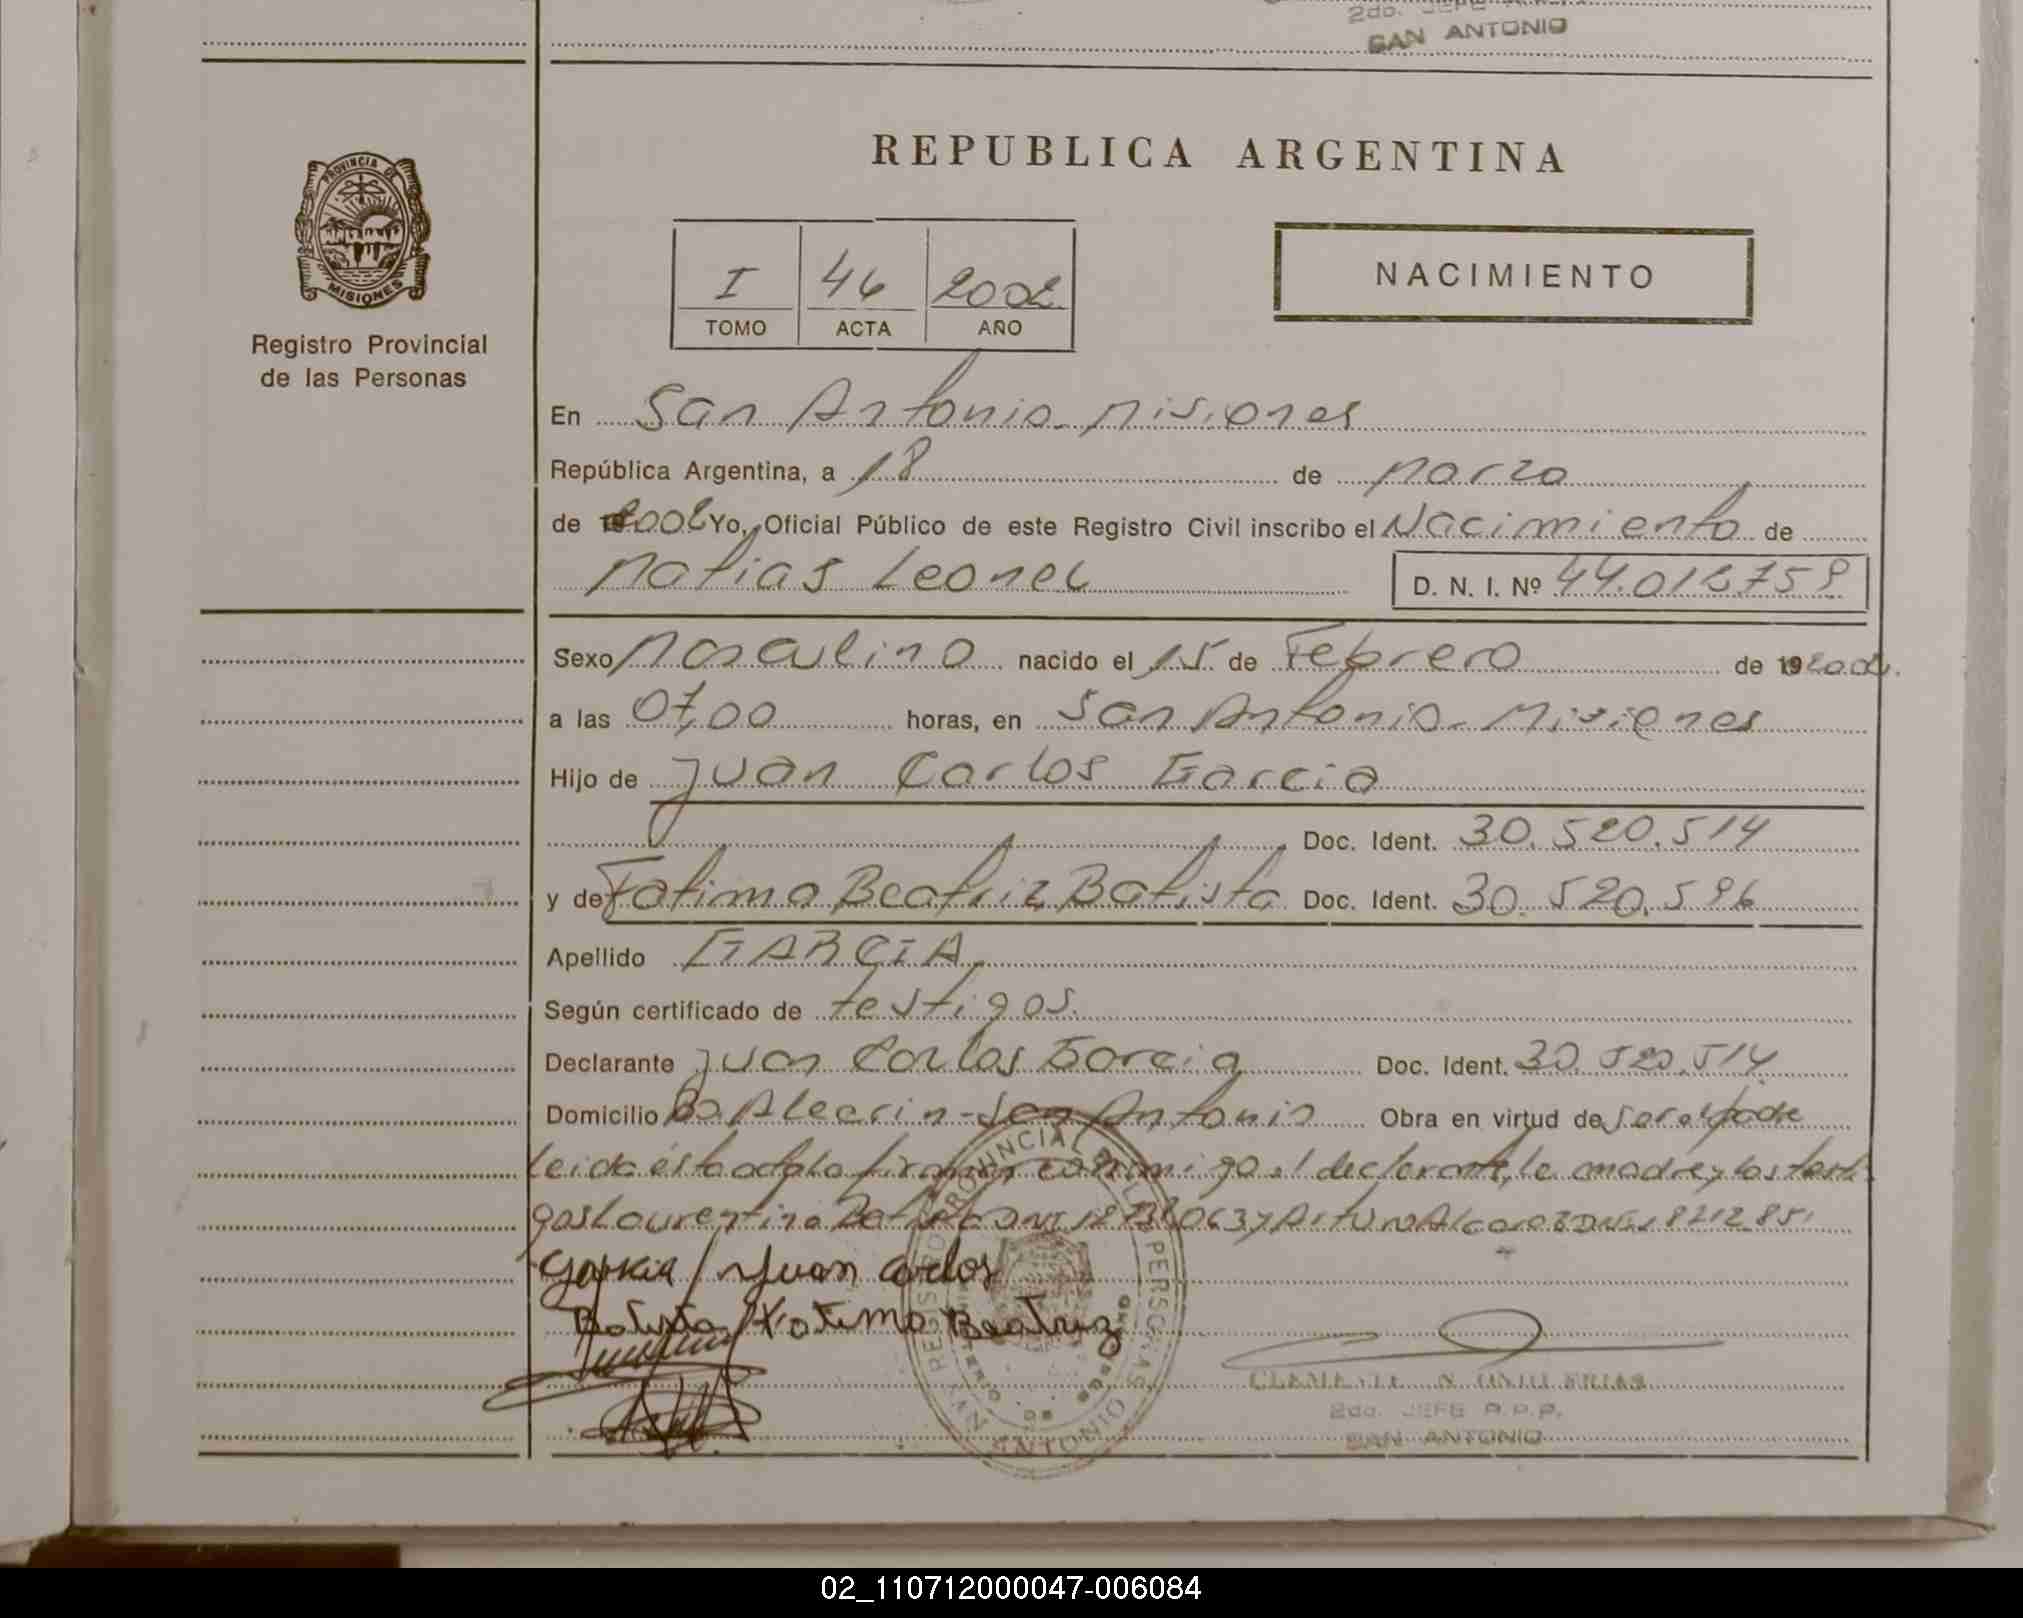 2do. JEFE
SAN ANTONIO
PROVINCIA DE
MISIONES
Registro Provincial
de las Personas
REPUBLICA ARGENTINA
I 46 2002
TOMO ACTA AÑO
NACIMIENTO
En San Antonio - Misiones
República Argentina, a 18 de Marzo
de 2002 Yo, Oficial Público de este Registro Civil inscribo el Nacimiento de
Matias Leonel D. N. I. Nº 44.012.759
Sexo Masculino nacido el 15 de Febrero de 19 2002.
a las 07,00 horas, en San Antonio - Misiones
Hijo de Juan Carlos Garcia
Doc. Ident. 30.520.514
y de Fatima Beatriz Batista Doc. Ident. 30.520.596
Apellido GARCIA
Según certificado de testigos.
Declarante Juan Carlos Garcia Doc. Ident. 30.520.514
Domicilio Bo. Alecrin - San Antonio Obra en virtud de ser el padre
leida esta acta la firman conmigo el declarante, la madre y los testi
gos Laurentino Batista DNI y Arturo DNI
Garcia / Juan Carlos
Batista / Fatima Beatriz
REGISTRO PROVINCIAL DE LAS PERSONAS
SAN ANTONIO
CLEMENTE
2do. JEFE R.P.P.
SAN ANTONIO
02_110712000047-006084